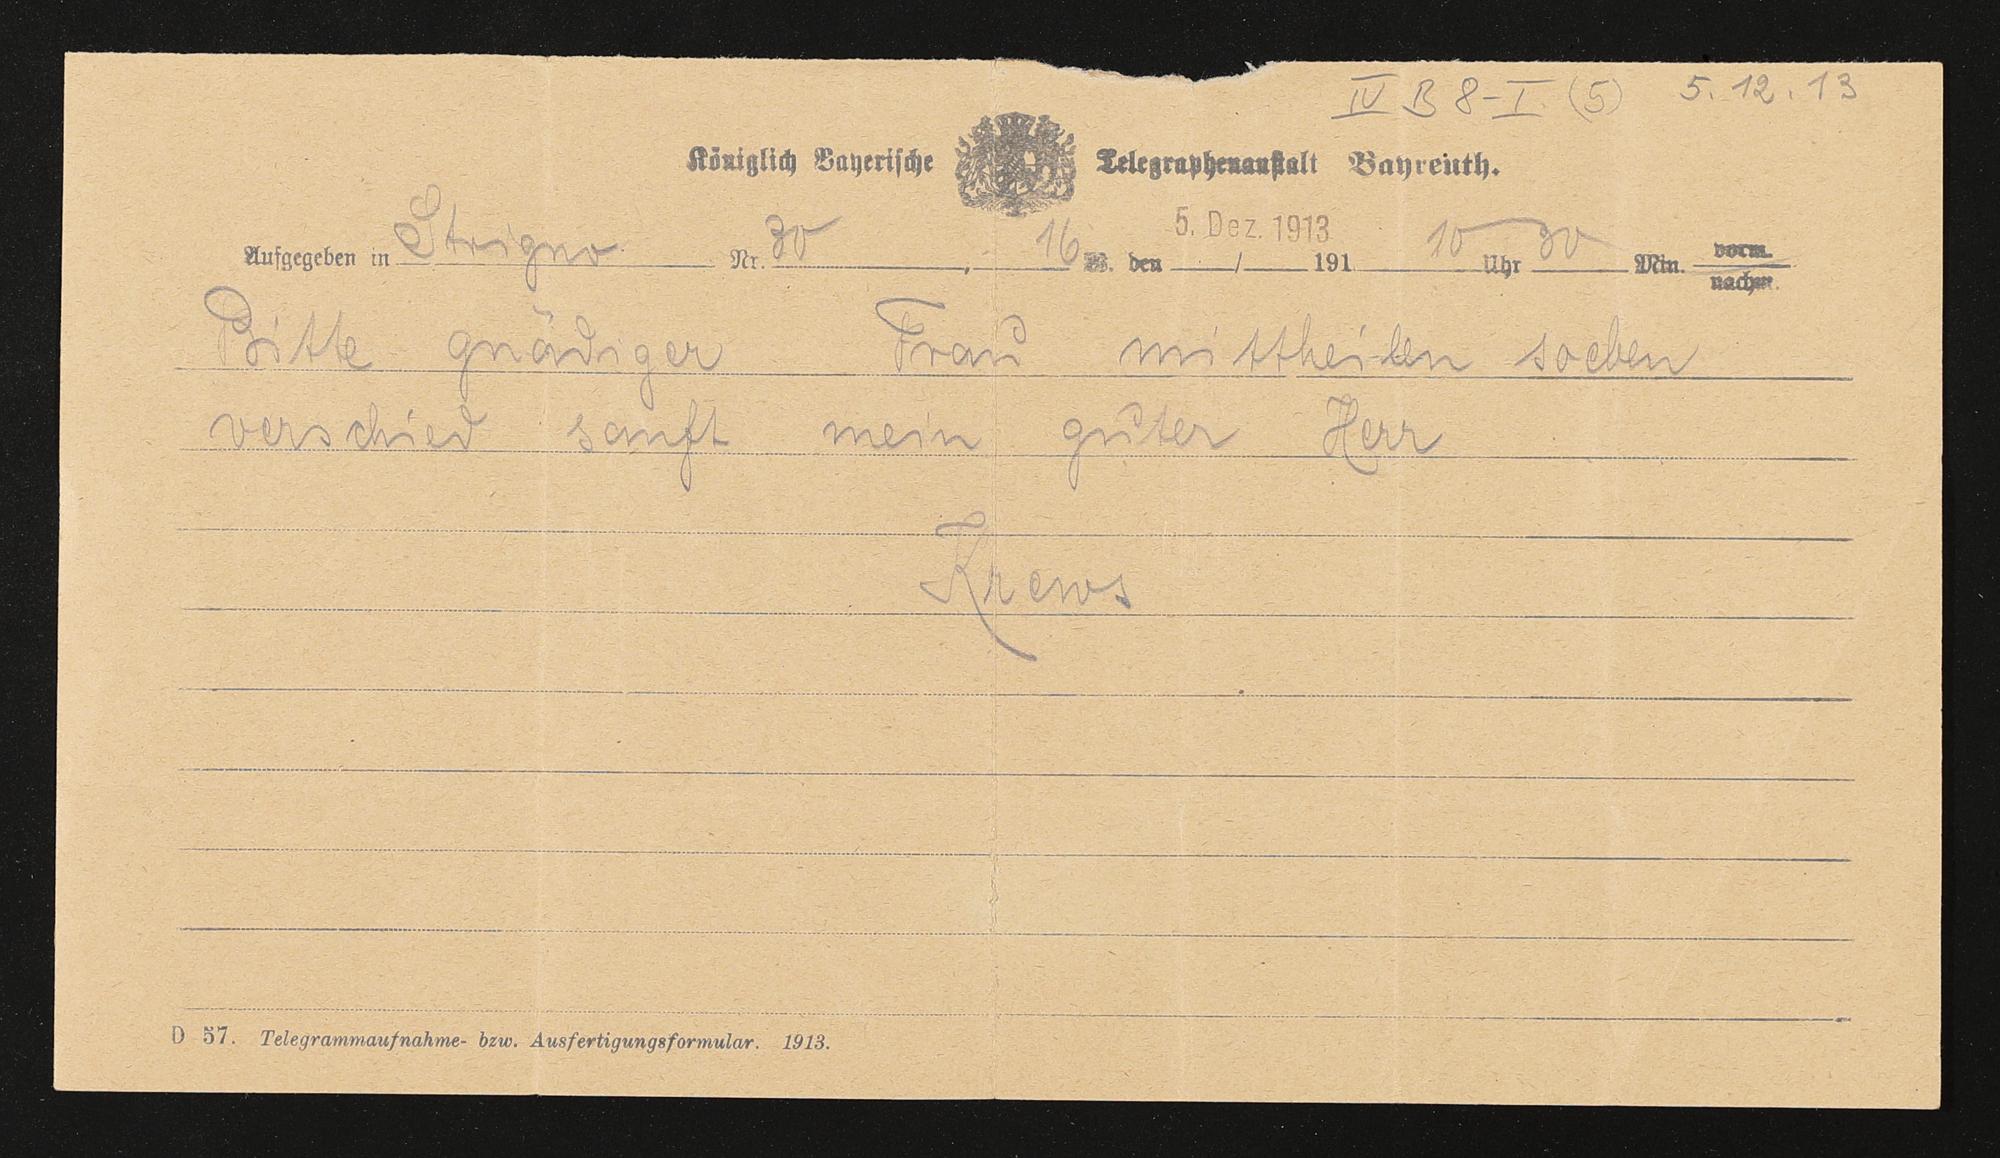 IV B 8-I (5) 5.12.13
Königlich Bayerische Telegraphenanstalt Bayreuth.
Aufgegeben in Strigno Nr. 30, 16 W. den 5. Dez. 1913 / 191 10 Uhr 30 Min. vorm. nachm.
Bitte gnädiger Frau mittheilen soeben
verschied sanft mein guter Herr
Krews
D 57. Telegrammaufnahme- bzw. Ausfertigungsformular. 1913.